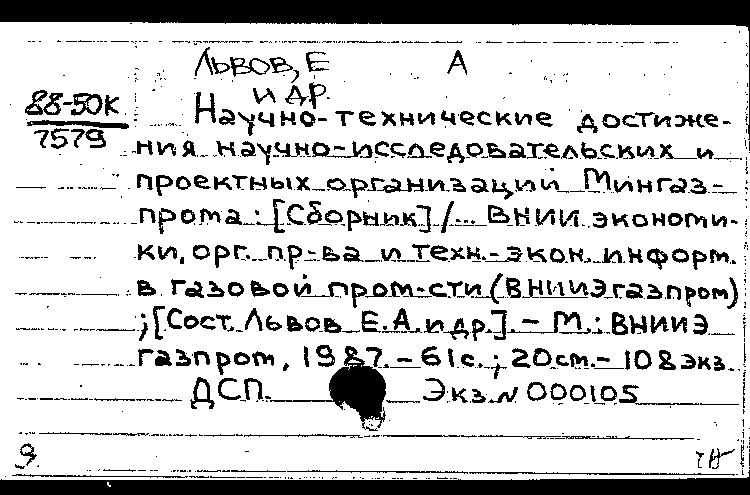 Львов, Е А
и др.
88-50К
7579
Научно-технические достиже-
ния научно-исследовательских и
проектных организаций Мингаз-
прома: [Сборник]/... ВНИИ экономи-
ки, орг. пр-ва и техн.-экон. информ.
в газовой пром-сти (ВНИИЭгазпром)
;[Сост. Львов Е.А. и др.]. - М.: ВНИИЭ
газпром, 1987. - 61с.; 20см. - 108экз.
ДСП. Экз. N 000105
9.